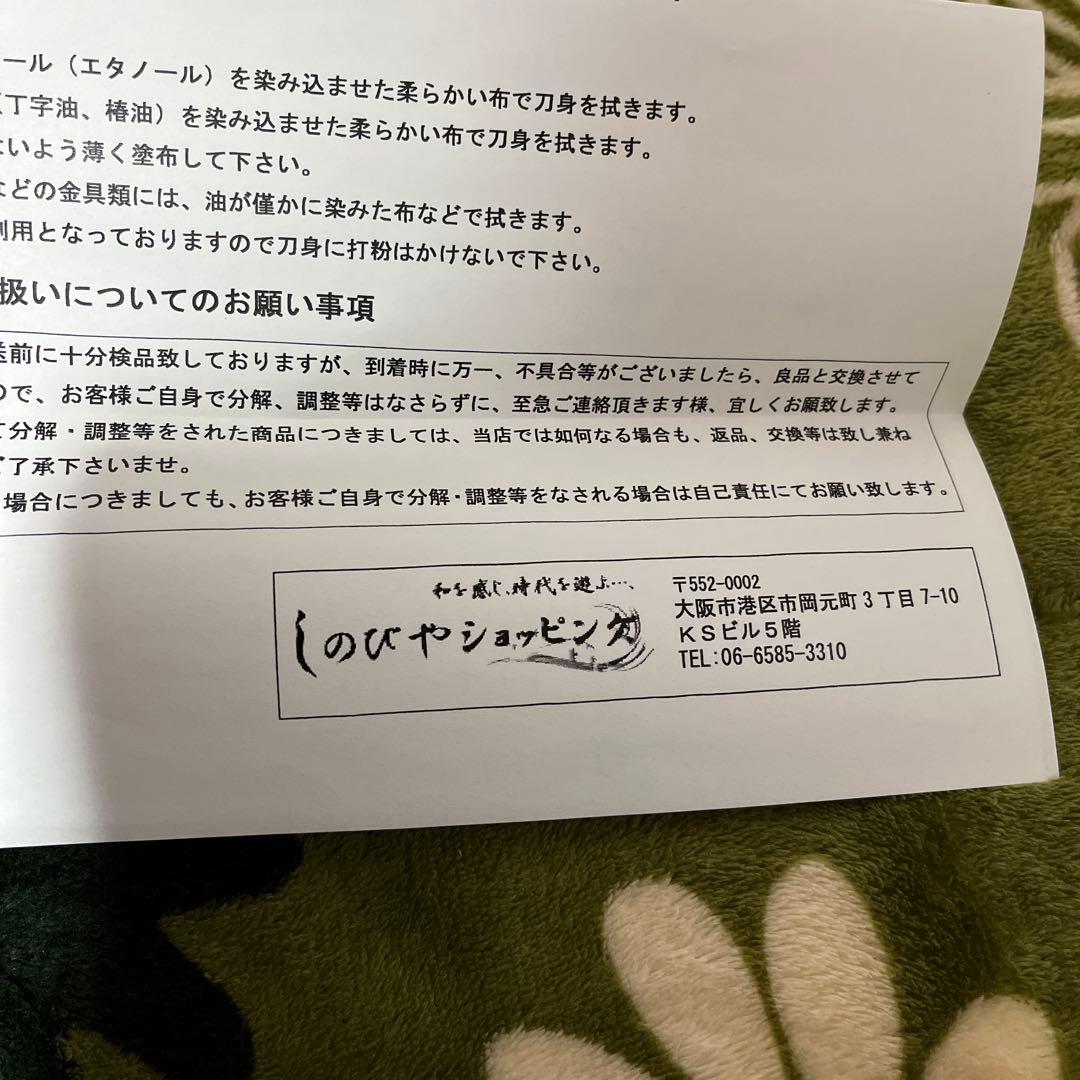 ール（エタノール）を染み込ませた柔らかい布で刀身を拭きます。
丁字油、椿油）を染み込ませた柔らかい布で刀身を拭きます。
いよう薄く塗布して下さい。
などの金具類には、油が僅かに染みた布などで拭きます。
用となっておりますので刀身に打粉はかけないで下さい。
扱いについてのお願い事項
前に十分検品致しておりますが、到着時に万一、不具合等がございましたら、良品と交換させて
ので、お客様ご自身で分解、調整等はなさらずに、至急ご連絡頂きます様、宜しくお願致します。
て分解・調整等をされた商品につきましては、当店では如何なる場合も、返品、交換等は致し兼ね
ご了承下さいませ。
場合につきましても、お客様ご自身で分解・調整等をなされる場合は自己責任にてお願い致します。
和を感じ、時代を遊ぶ…、
しのびやショッピング
〒552-0002
大阪市港区市岡元町3丁目7-10
KSビル5階
TEL:06-6585-3310